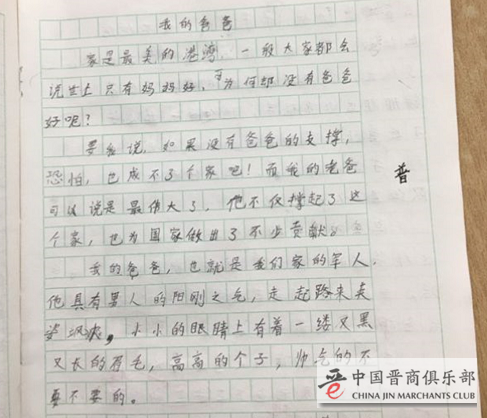 我的爸爸
家是最美的港湾，一般大家都会
说世上只有妈妈好，可为何却没有爸爸
好呢？
要我说，如果没有爸爸的支撑，
恐怕，也成不了个家吧！而我的老爸
可以说是最伟大了，他不仅撑起了这
个家，也为国家做出了不少贡献。
我的爸爸，也就是我们家的军人，
他具有男人的阳刚之气，走起路来英
姿飒爽，小小的眼睛上有着一缕又黑
又长的眉毛，高高的个子，帅气的不
要不要的。
晋
中国晋商俱乐部
CHINA JIN MARCHANTS CLUB